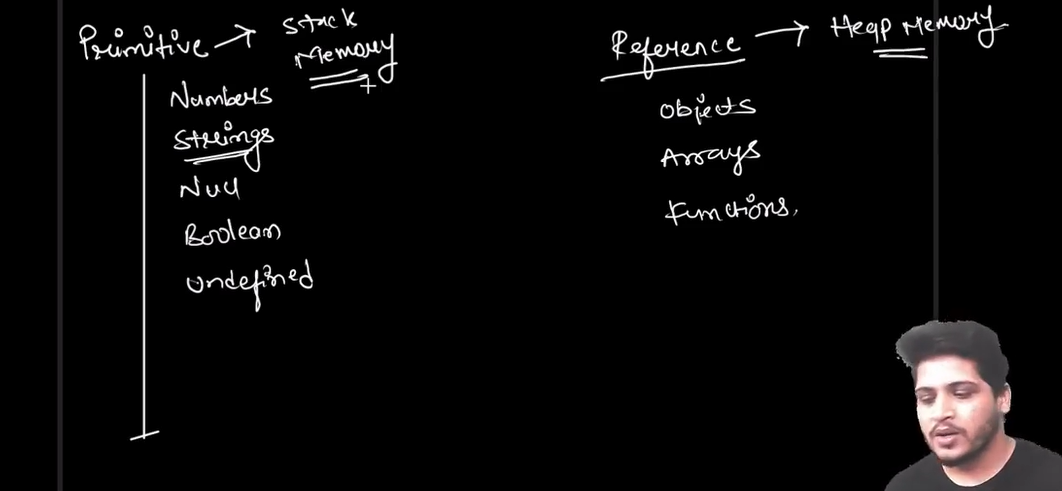 Primitive → Stack
Memory
Numbers
Strings
Null
Boolean
undefined
Reference → Heap Memory
Objects
Arrays
Functions.